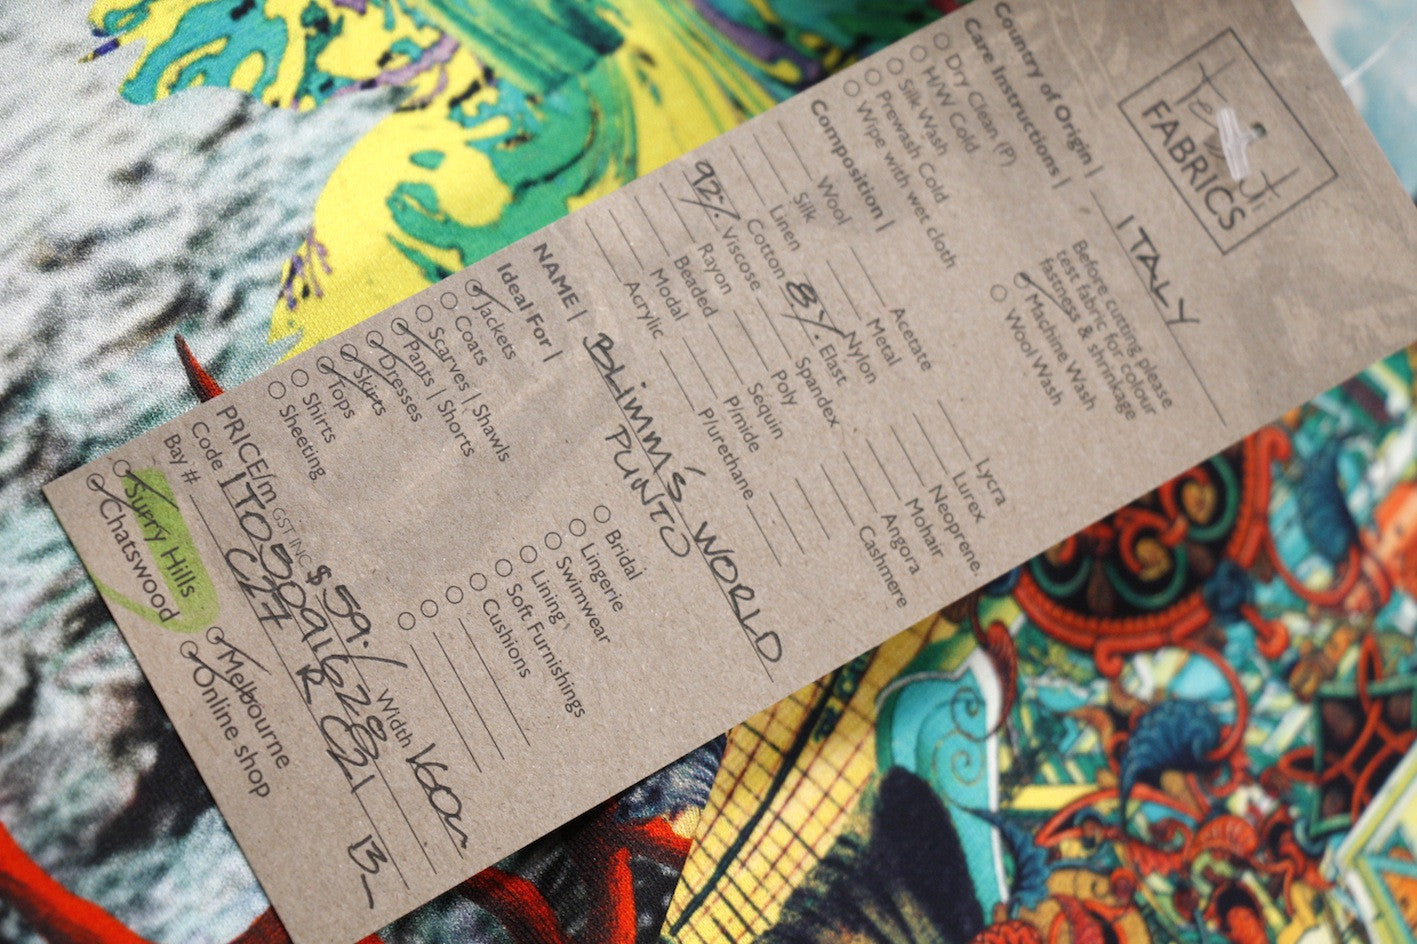 FABRICS
Country of Origin | ITALY
Care Instructions |
Dry Clean (P)
H/W Cold
Silk Wash
Prewash Cold
Wipe with wet cloth
Before cutting please
test fabric for colour
fastness & shrinkage
Machine Wash
Wool Wash
Composition |
Wool
Silk
Linen
Cotton
92% Viscose
Rayon
Beaded
Modal
Acrylic
Acetate
Metal
Nylon
8% Elast
Spandex
Poly
Sequin
P/mide
P/urethane
Lycra
Lurex
Neoprene.
Mohair
Angora
Cashmere
NAME | BLIMM'S WORLD
PUNTO
Ideal For |
Jackets
Coats
Scarves | Shawls
Pants | Shorts
Dresses
Skirts
Tops
Shirts
Sheeting
Bridal
Lingerie
Swimwear
Lining
Soft Furnishings
Cushions
PRICE/m GST INC $59./ Width 160m
Code
Bay # C17 R C21 B
Surry Hills
Chatswood
Melbourne
Online shop